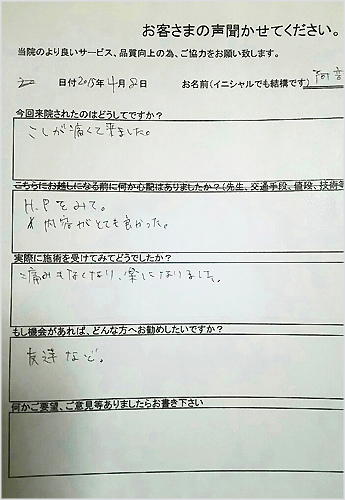 お客さまの声聞かせてください。
当院のより良いサービス、品質向上の為、ご協力をお願い致します。
日付2015年4月8日 お名前(イニシャルでも結構です)
今回来院されたのはどうしてですか?
こしが痛くて来ました。
こちらにお越しになる前に何か心配はありましたか?(先生、交通手段、値段、技術等
H.Pをみて。
内容がとても良かった。
実際に施術を受けてみてどうでしたか?
痛みもなくなり、楽になりました。
もし機会があれば、どんな方へお勧めしたいですか?
友達など。
何かご要望、ご意見等ありましたらお書き下さい